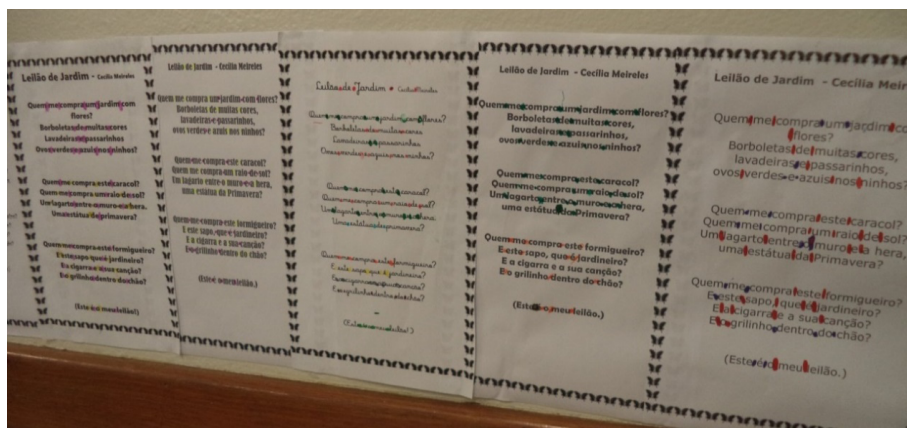 Leilão de Jardim - Cecília Meireles
Quem me compra um jardim com
flores?
Borboletas de muitas cores
Lavadeiras e passarinhos
Ovos verdes e azuis nos ninhos?
Quem me compra este caracol?
Quem me compra um raio de sol?
Um lagarto entre o muro e a hera,
Uma estátua da primavera?
Quem me compra este formigueiro?
E este sapo que é jardineiro?
E a cigarra e a sua canção?
E o grilinho dentro do chão?
(Este é o meu leilão!)
Leilão de Jardim - Cecília Meireles
Quem me compra um jardim com flores?
Borboletas de muitas cores,
lavadeiras e passarinhos,
ovos verdes e azuis nos ninhos?
Quem me compra este caracol?
Quem me compra um raio de sol?
Um lagarto entre o muro e a hera,
uma estátua da Primavera?
Quem me compra este formigueiro?
E este sapo, que é jardineiro?
E a cigarra e a sua canção?
E o grilinho dentro do chão?
(Este é o meu leilão.)
Leilão de Jardim - Cecília Meireles
Quem me compra um jardim com flores?
Borboletas de muitas cores
Lavadeiras e passarinhos
Ovos verdes e azuis nos ninhos?
Quem me compra este caracol?
Quem me compra um raio de sol?
Um lagarto entre o muro e a hera
Uma estátua da primavera?
Quem me compra este formigueiro?
E este sapo, que é jardineiro?
E a cigarra e a sua canção?
E o grilinho dentro do chão?
(Este é o meu leilão!)
Leilão de Jardim - Cecília Meireles
Quem me compra um jardim com flores?
Borboletas de muitas cores,
lavadeiras e passarinhos,
ovos verdes e azuis nos ninhos?
Quem me compra este caracol?
Quem me compra um raio de sol?
Um lagarto entre o muro e a hera,
uma estátua da Primavera?
Quem me compra este formigueiro?
E este sapo, que é jardineiro?
E a cigarra e a sua canção?
E o grilinho dentro do chão?
(Este é o meu leilão.)
Leilão de Jardim - Cecília Meir
Quem me compra um jardim co
flores?
Borboletas de muitas cores,
lavadeiras e passarinhos,
ovos verdes e azuis nos ninhos?
Quem me compra este caracol?
Quem me compra um raio de sol?
Um lagarto entre o muro e a hera,
uma estátua da Primavera?
Quem me compra este formigueiro?
E este sapo, que é jardineiro?
E a cigarra e a sua canção?
E o grilinho dentro do chão?
(Este é o meu leilão.)